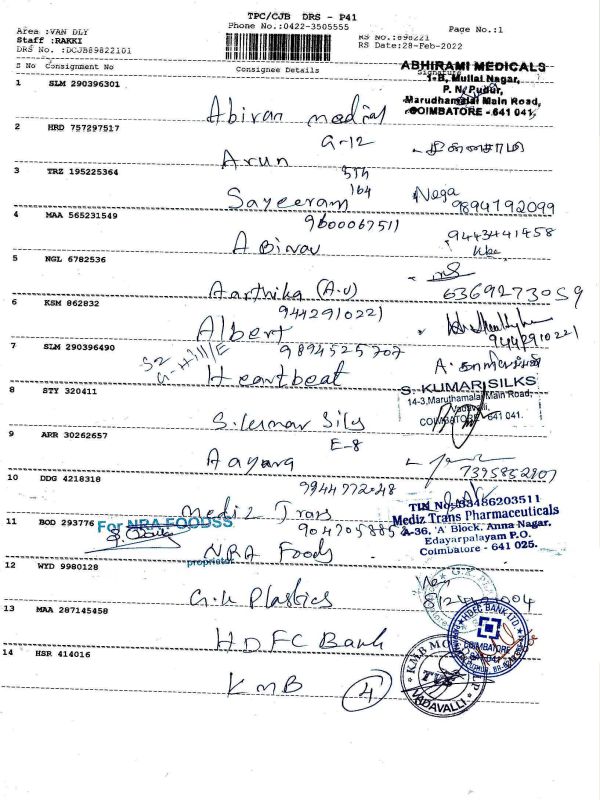 TPC/CJB DRS - P41
Phone No.:0422-3505555
Page No.:1
Area :VAN DLY
Staff :RAKKI
DRS No. :DCJB89822101
RS No.:898221
RS Date:28-Feb-2022
S No Consignment No
Consignee Details
Signature
ABHIRAMI MEDICALS
1-B, Mullai Nagar,
P. N. Pudur,
Marudhamalai Main Road,
COIMBATORE - 641 041.
1 SLM 290396301
Abiram medial
2 HRD 757297517
G-12
Arun
3 TRZ 195225364
5th
164
Sayeeram
Naga
9894792099
4 MAA 565231549
9600067511
Abinav
9443441458
5 NGL 6782536
Aarthika (A.V)
6369273059
6 KSM 862832
9442910221
Albert
9442910221
7 SLM 290396490
S2
G-Hill/E
9894525707
Heartbeat
8 STY 320411
S. KUMAR SILKS
14-3, Maruthamalai Main Road,
Vadavalli,
COIMBATORE - 641 041.
S.kumar Silks
9 ARR 30262657
E-8
Aayara
7395852807
10 DDG 4218318
9944772048
Mediz Trans
TIN No:33486203511
Mediz Trans Pharmaceuticals
A-36, 'A' Block, Anna Nagar,
Edayarpalayam P.O.
Coimbatore - 641 025.
11 BOD 293776
For NRA FOODSS
proprietor
NRA Foods
12 WYD 9980128
G.K Plastics
13 MAA 287145458
HDFC Bank
HDFC BANK LTD
COIMBATORE
14 HSR 414016
KMB
4
KMB MO
TVS
VADAVALLI